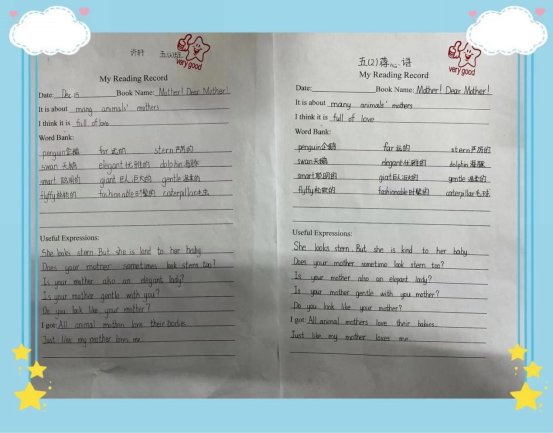 许轩 五(2)班
very good
My Reading Record
Date: Dec 15 Book Name: Mother! Dear Mother!
It is about many animals' mothers
I think it is full of love
Word Bank:
penguin企鹅 far 远的 stern严厉的
swan 天鹅 elegant优雅的 dolphin 海豚
smart 聪明的 giant 巨人,巨大的 gentle 温柔的
fluffy松软的 fashionable时髦的 caterpillar毛虫
Useful Expressions:
She looks stern. But she is kind to her baby.
Does your mother sometimes look stern too?
Is your mother also an elegant lady?
Is your mother gentle with you?
Do you look like your mother?
I got: All animal mothers love their babies.
Just like my mother loves me.
五(2)蒋心语
very good
My Reading Record
Date: Book Name: Mother! Dear Mother!
It is about many animals' mothers
I think it is full of love
Word Bank:
penguin企鹅 far 远的 stern严厉的
swan天鹅 elegant优雅的 dolphin 海豚
smart聪明的 giant巨人,巨大的 gentle 温柔的
fluffy松软的 fashionable时髦的 caterpillar毛虫
Useful Expressions:
She looks stern. But she is kind to her baby.
Does your mother sometime look stern too?
Is your mother also an elegant lady?
Is your mother gentle with you mother?
Do you look like your mother?
I got: All animal mothers love their babies.
Just like my mother loves me.